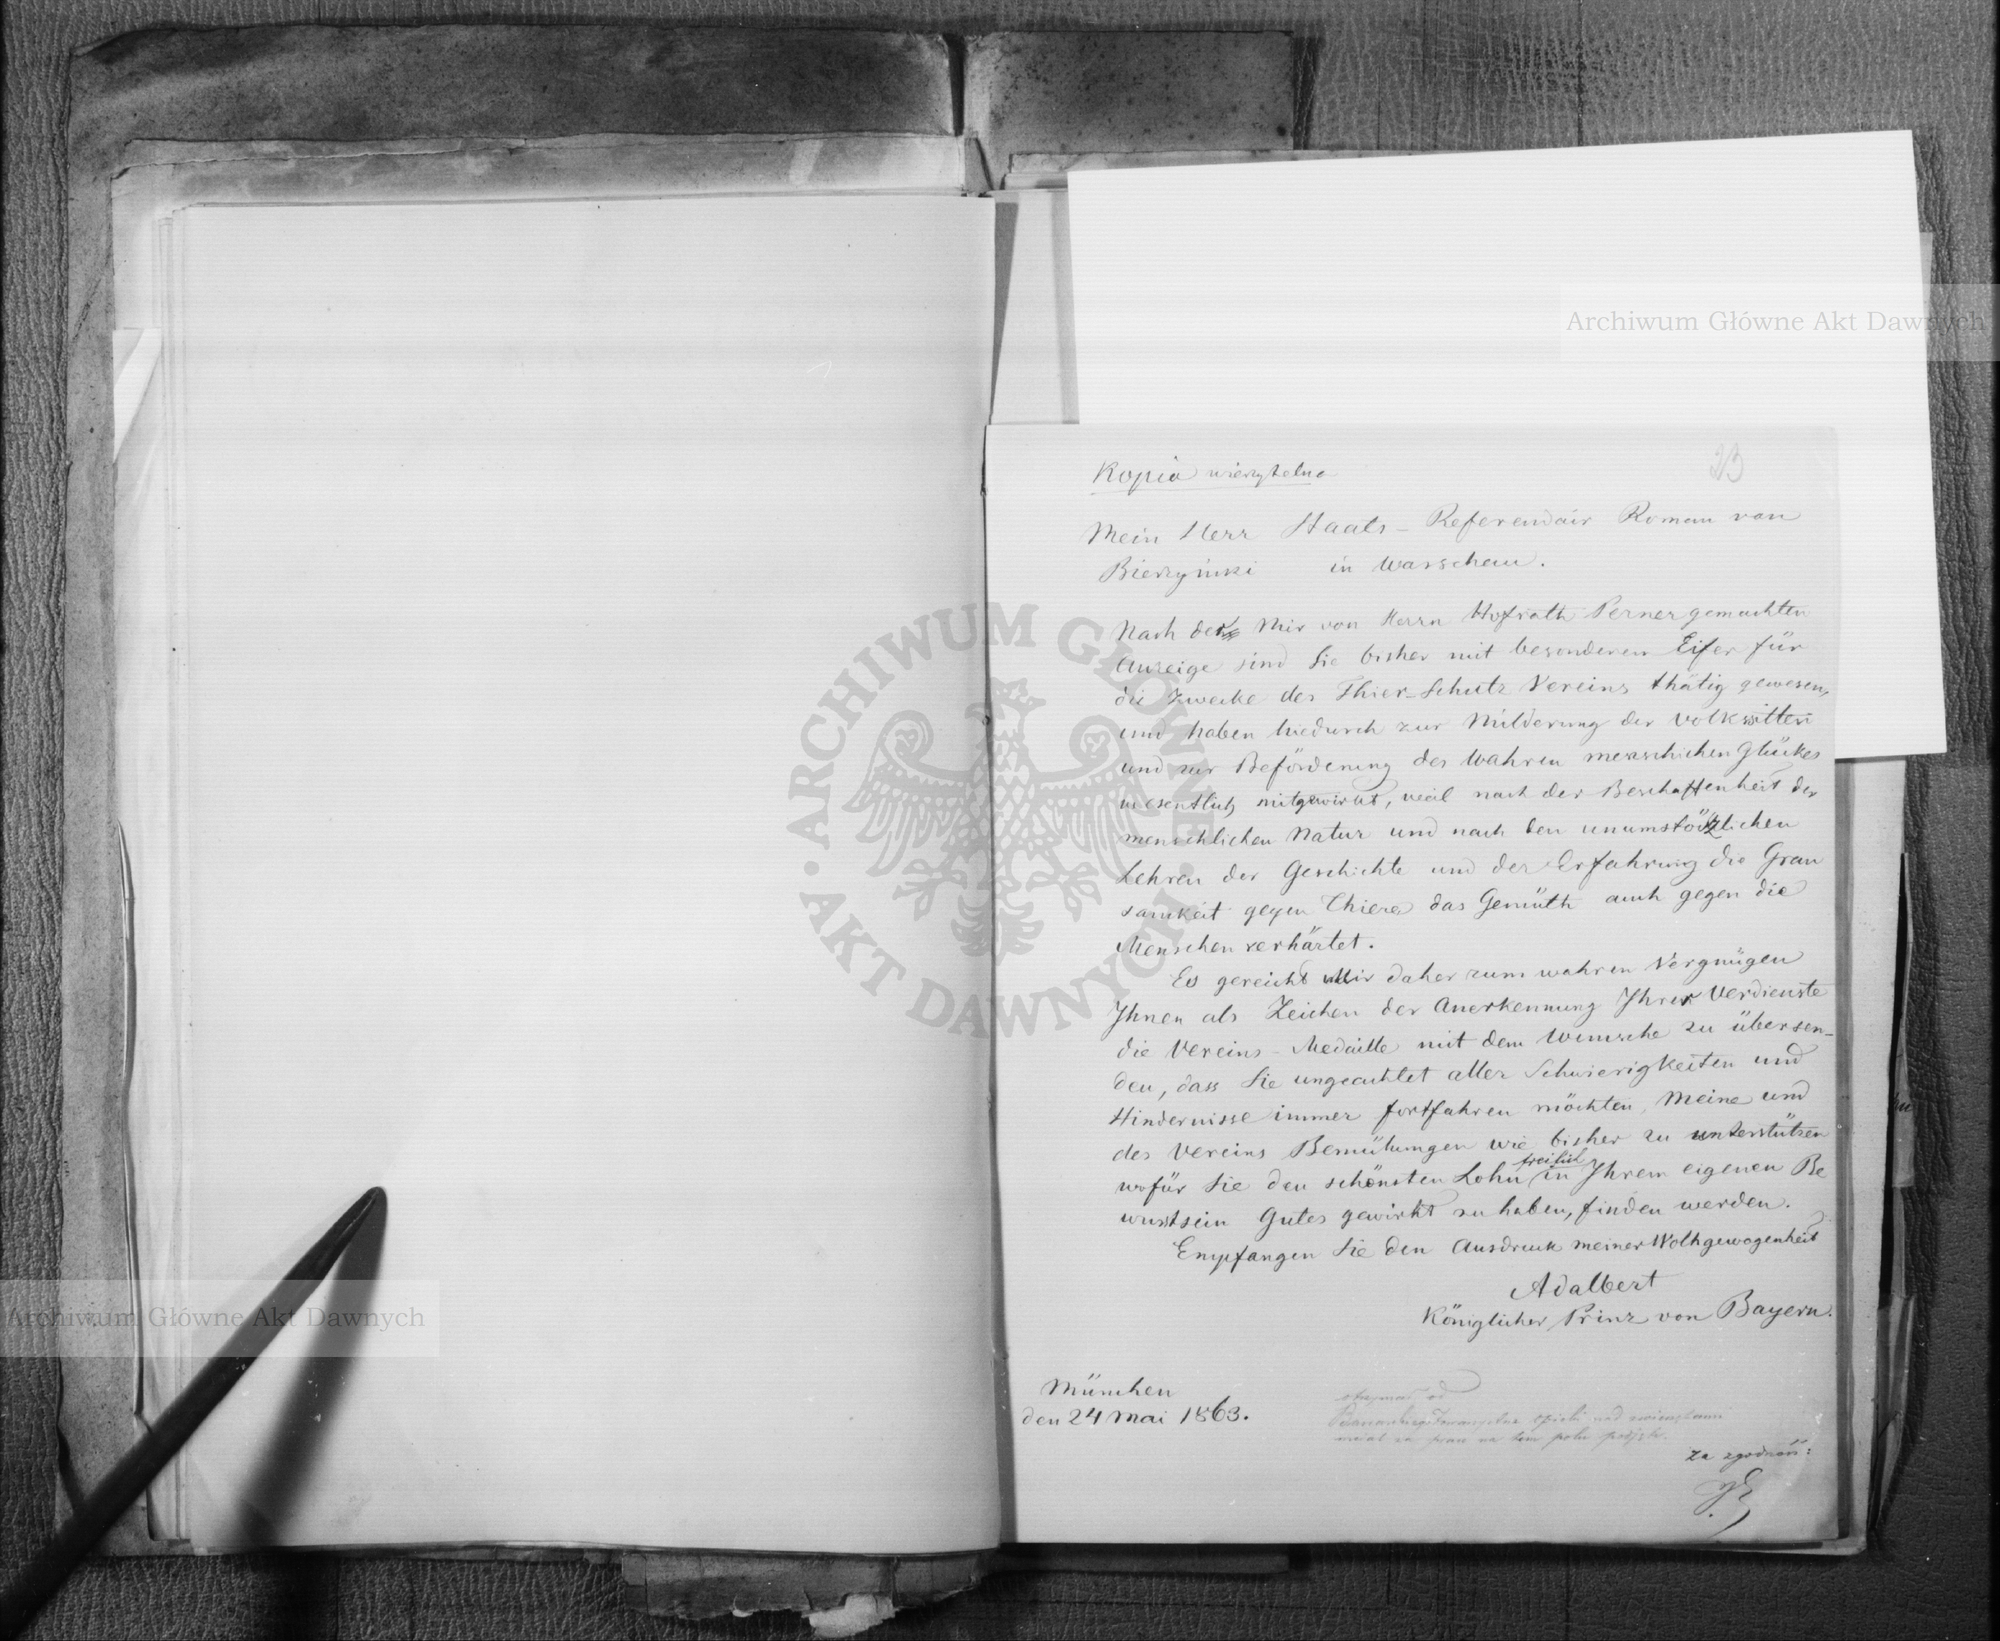 23
Kopia wierzytelna
Mein Herr Staats-Referendair Roman von
Bierzyński in Warschau.
Nach der Mir von Herrn Hofrath Perner gemachten
Anzeige sind Sie bisher mit besonderem Eifer für
die Zwecke des Thier-Schutz Vereins thätig gewesen,
und haben hiedurch zur Milderung der Volkssitten
und zur Beförderung des Wahren menschlichen Glückes
wesentlich mitgewirkt, weil nach der Beschaffenheit der
menschlichen Natur und nach den unumstößlichen
Lehren der Geschichte und der Erfahrung die Grau
samkeit gegen Thiere das Gemüth auch gegen die
Menschen verhärtet.
Es gereicht Mir daher zum wahren Vergnügen
Ihnen als Zeichen der Anerkennung Ihrer Verdienste
die Vereins-Medaille mit dem Wunsche zu übersen-
den, dass Sie ungeachtet aller Schwierigkeiten und
Hindernisse immer fortfahren möchten, Meine und
des Vereins Bemühungen wie bisher zu unterstützen
wofür Sie den schönsten Lohn freilich in Ihrem eigenen Be
wusstsein Gutes gewirkt zu haben, finden werden.
Empfangen Sie den Ausdruck meiner Wohlgewogenheit
Adalbert
Königlicher Prinz von Bayern.
München
den 24 Mai 1863.
otrzymał od
Towarzystwa opieki nad zwierzętami
medal za prace na tem polu podjęte.
za zgodność:
Archiwum Główne Akt Dawnych
Archiwum Główne Akt Dawnych
ARCHIWUM GŁÓWNE AKT DAWNYCH